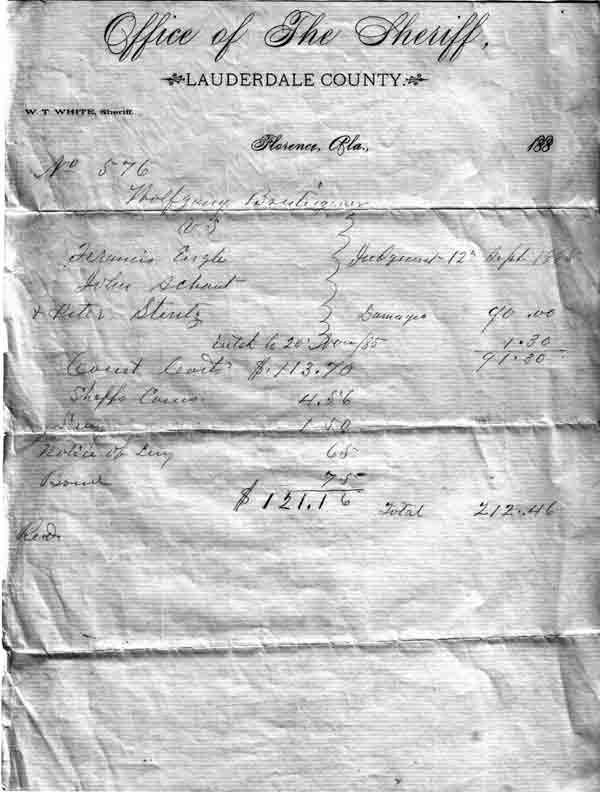 Office of The Sheriff,
LAUDERDALE COUNTY.
W. T. WHITE, Sheriff.
Florence, Ala., 188
No 576
Wolfgang
VS
Francis Engle Judgment 12" Sept
John Schaut
& Peter Steritz Damages 90.00
Intst to 20" Nov/85 1.30
91.30
Court Costs $113.70
Sheffs Coms. 4.56
Levy 1 50
Notice of Levy 65
Bond 75
$121.16 Total 212.46
Recd.